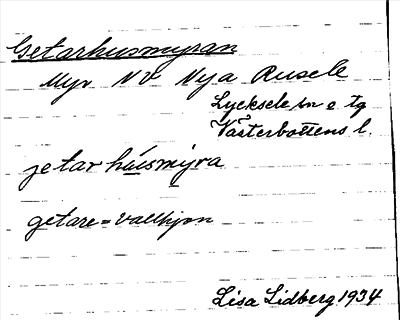 Getarhusmyran
Myr NV Nya Rusele
Lycksele sn o. tg
Västerbottens l.
jetarhúsmýra
getare = vallhjon
Lisa Lidberg 1934